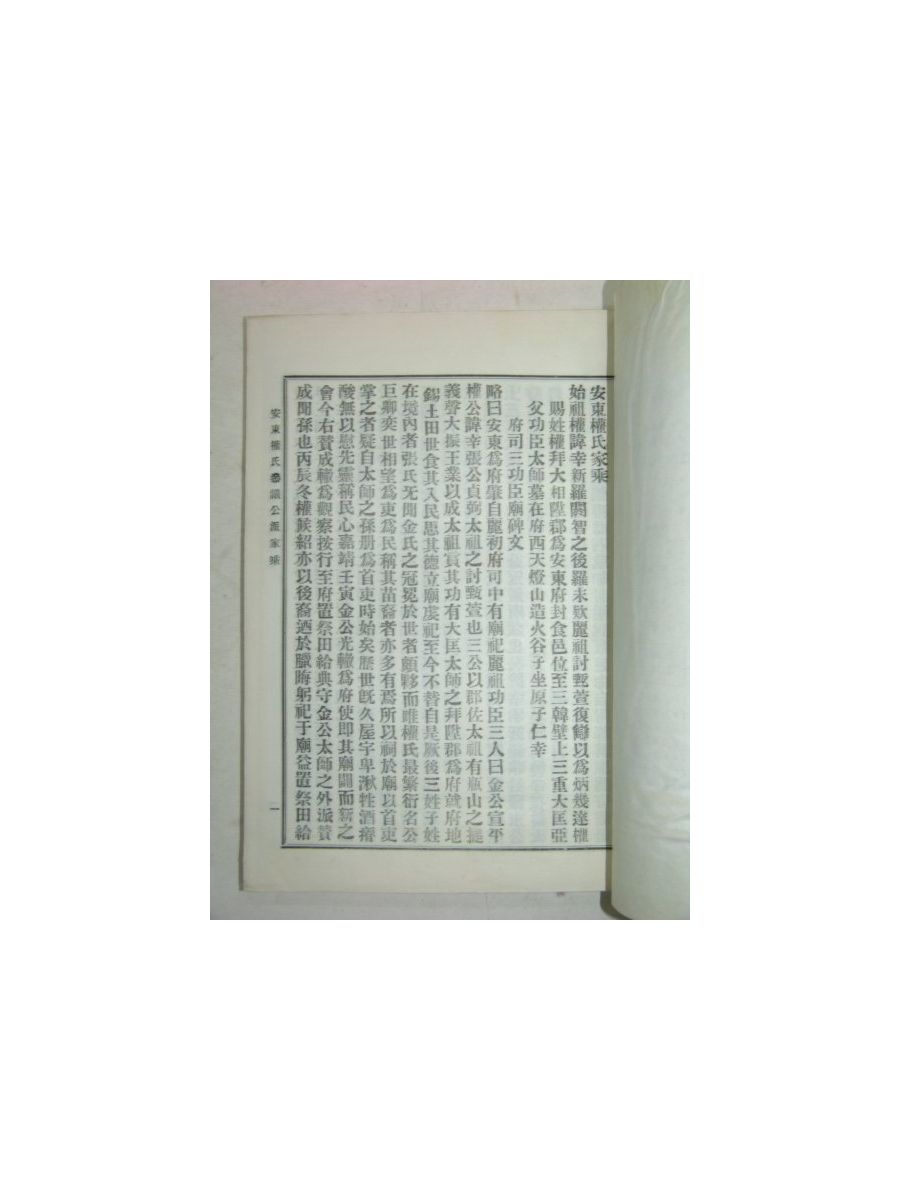 安東權氏家乘
始祖權諱幸新羅閼智之後羅末欸麗祖討甄萱復讐以爲炳幾達權
賜姓權拜大相陞郡爲安東府封食邑位至三韓壁上三重大匡亞
父功臣太師墓在府西天燈山造火谷子坐原子仁幸
府司三功臣廟碑文
略曰安東爲府肇自麗初府司中有廟祀麗祖功臣三人曰金公宣平
權公諱幸張公貞弼太祖之討甄萱也三公以郡佐太祖有甁山之捷
義聲大振王業以成太祖賞其功有大匡太師之拜陞郡爲府就府地
錫土田世食其入民思其德立廟虔祀至今不替自是厥後三姓子姓
在境內者張氏无聞金氏之冠冕於世者頗夥而唯權氏最繁衍名公
巨卿奕世相望爲吏爲民稱其苗裔者亦多有焉所以祠於廟以首吏
掌之者疑自太師之孫冊爲首吏時始矣歷世旣久屋宇卑湫牲酒瘠
酸無以慰先靈稱民心嘉靖壬寅金公光轍爲府使即其廟闢而新之
會今右贊成轍爲觀察按行至府置祭田給典守金公太師之外派贊
成聞孫也丙辰冬權候紹亦以後裔迺於臘晦躬祀于廟益置祭田給
安東權氏參議公派家乘 一